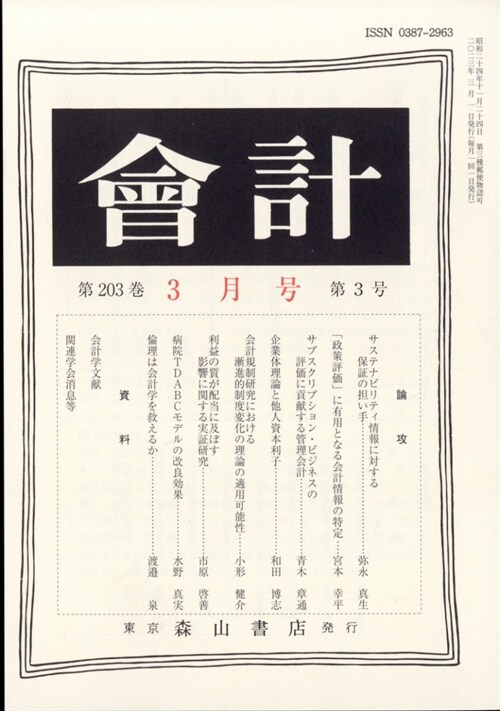 ISSN 0387-2963
昭和二十四年十一月二十四日　第三種郵便物認可
二〇二三年三月一日発行(毎月一回一日発行)
會計
第203巻 3月号 第3号
論攻
サステナビリティ情報に対する
保証の担い手……弥永 真生
「政策評価」に有用となる会計情報の特定……宮本 幸平
サブスクリプション・ビジネスの
評価に貢献する管理会計……青木 章通
企業体理論と他人資本利子……和田 博志
会計規制研究における
漸進的制度変化の理論の適用可能性……小形 健介
利益の質が配当に及ぼす
影響に関する実証研究……市原 啓善
病院TDABCモデルの改良効果……水野 真実
倫理は会計学を救えるか……渡邉 泉
資料
会計学文献
関連学会消息等
東京 森山書店 発行